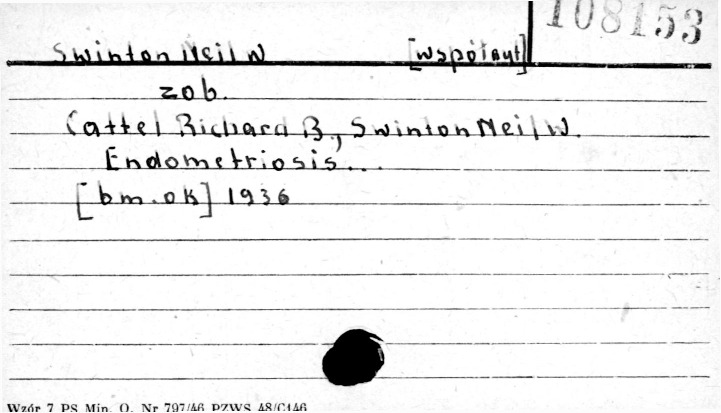 108153
Swinton Neil W [współaut]
zob.
Cattel Richard B., Swinton Neil W.
Endometriosis...
[bm. ok] 1936
Wzór 7 PS Min. O. Nr 797/46 PZWS 48/C146